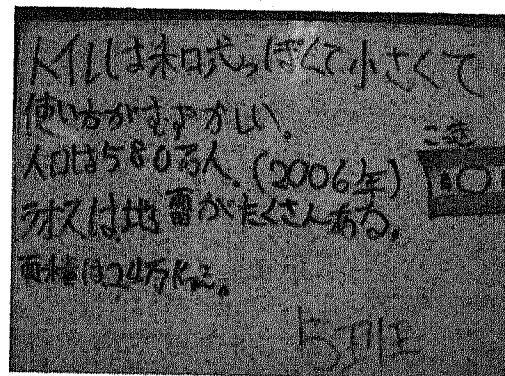 トイレは和式っぽくて小さくて
使い方がむずかしい。
人口は580万人。(2006年)
ラオスは地雷がたくさんある。
面積は24万km2。